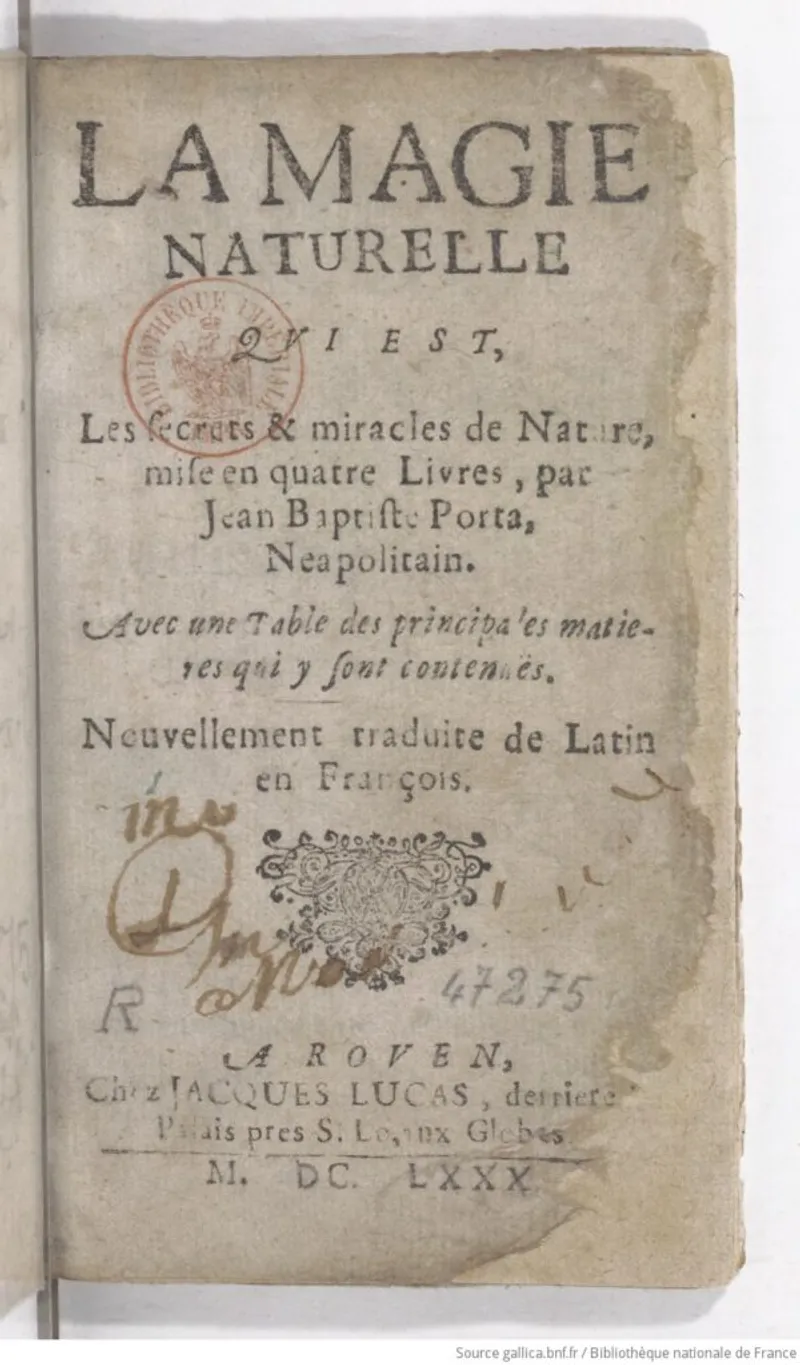 LA MAGIE
NATURELLE
QVI EST,
BIBLIOTHEQUE IMPERIALE
Les ſecrets & miracles de Nature,
miſe en quatre Livres, par
Jean Baptiſte Porta,
Neapolitain.
Avec une Table des principales matie-
res qui y ſont contenuës.
Nouvellement traduite de Latin
en François.
R
47275
A ROVEN,
Chez JACQUES LUCAS, derriere
Palais pres S. Lo, aux Globes.
M. DC. LXXX
Source gallica.bnf.fr / Bibliothèque nationale de France